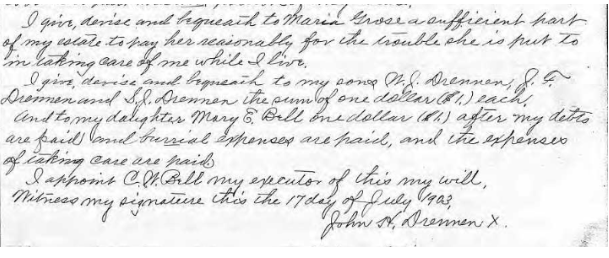 I give, devise and bequeath to Maria Grose a sufficient part
of my estate to pay her reasonably for the trouble she is put to
in taking care of me while I live.
I give, devise and bequeath to my sons W. J. Drennen, J. F.
Drennen and S. J. Drennen the sum of one dollar ($1.) each.
And to my daughter Mary E. Bell one dollar ($1.) after my debts
are paid and burrial expenses are paid, and the expenses
of taking care are paid.
I appoint C. W. Bell my executor of this my will,
Witness my signature this the 17 day of July 1903,
John H. Drennen X.